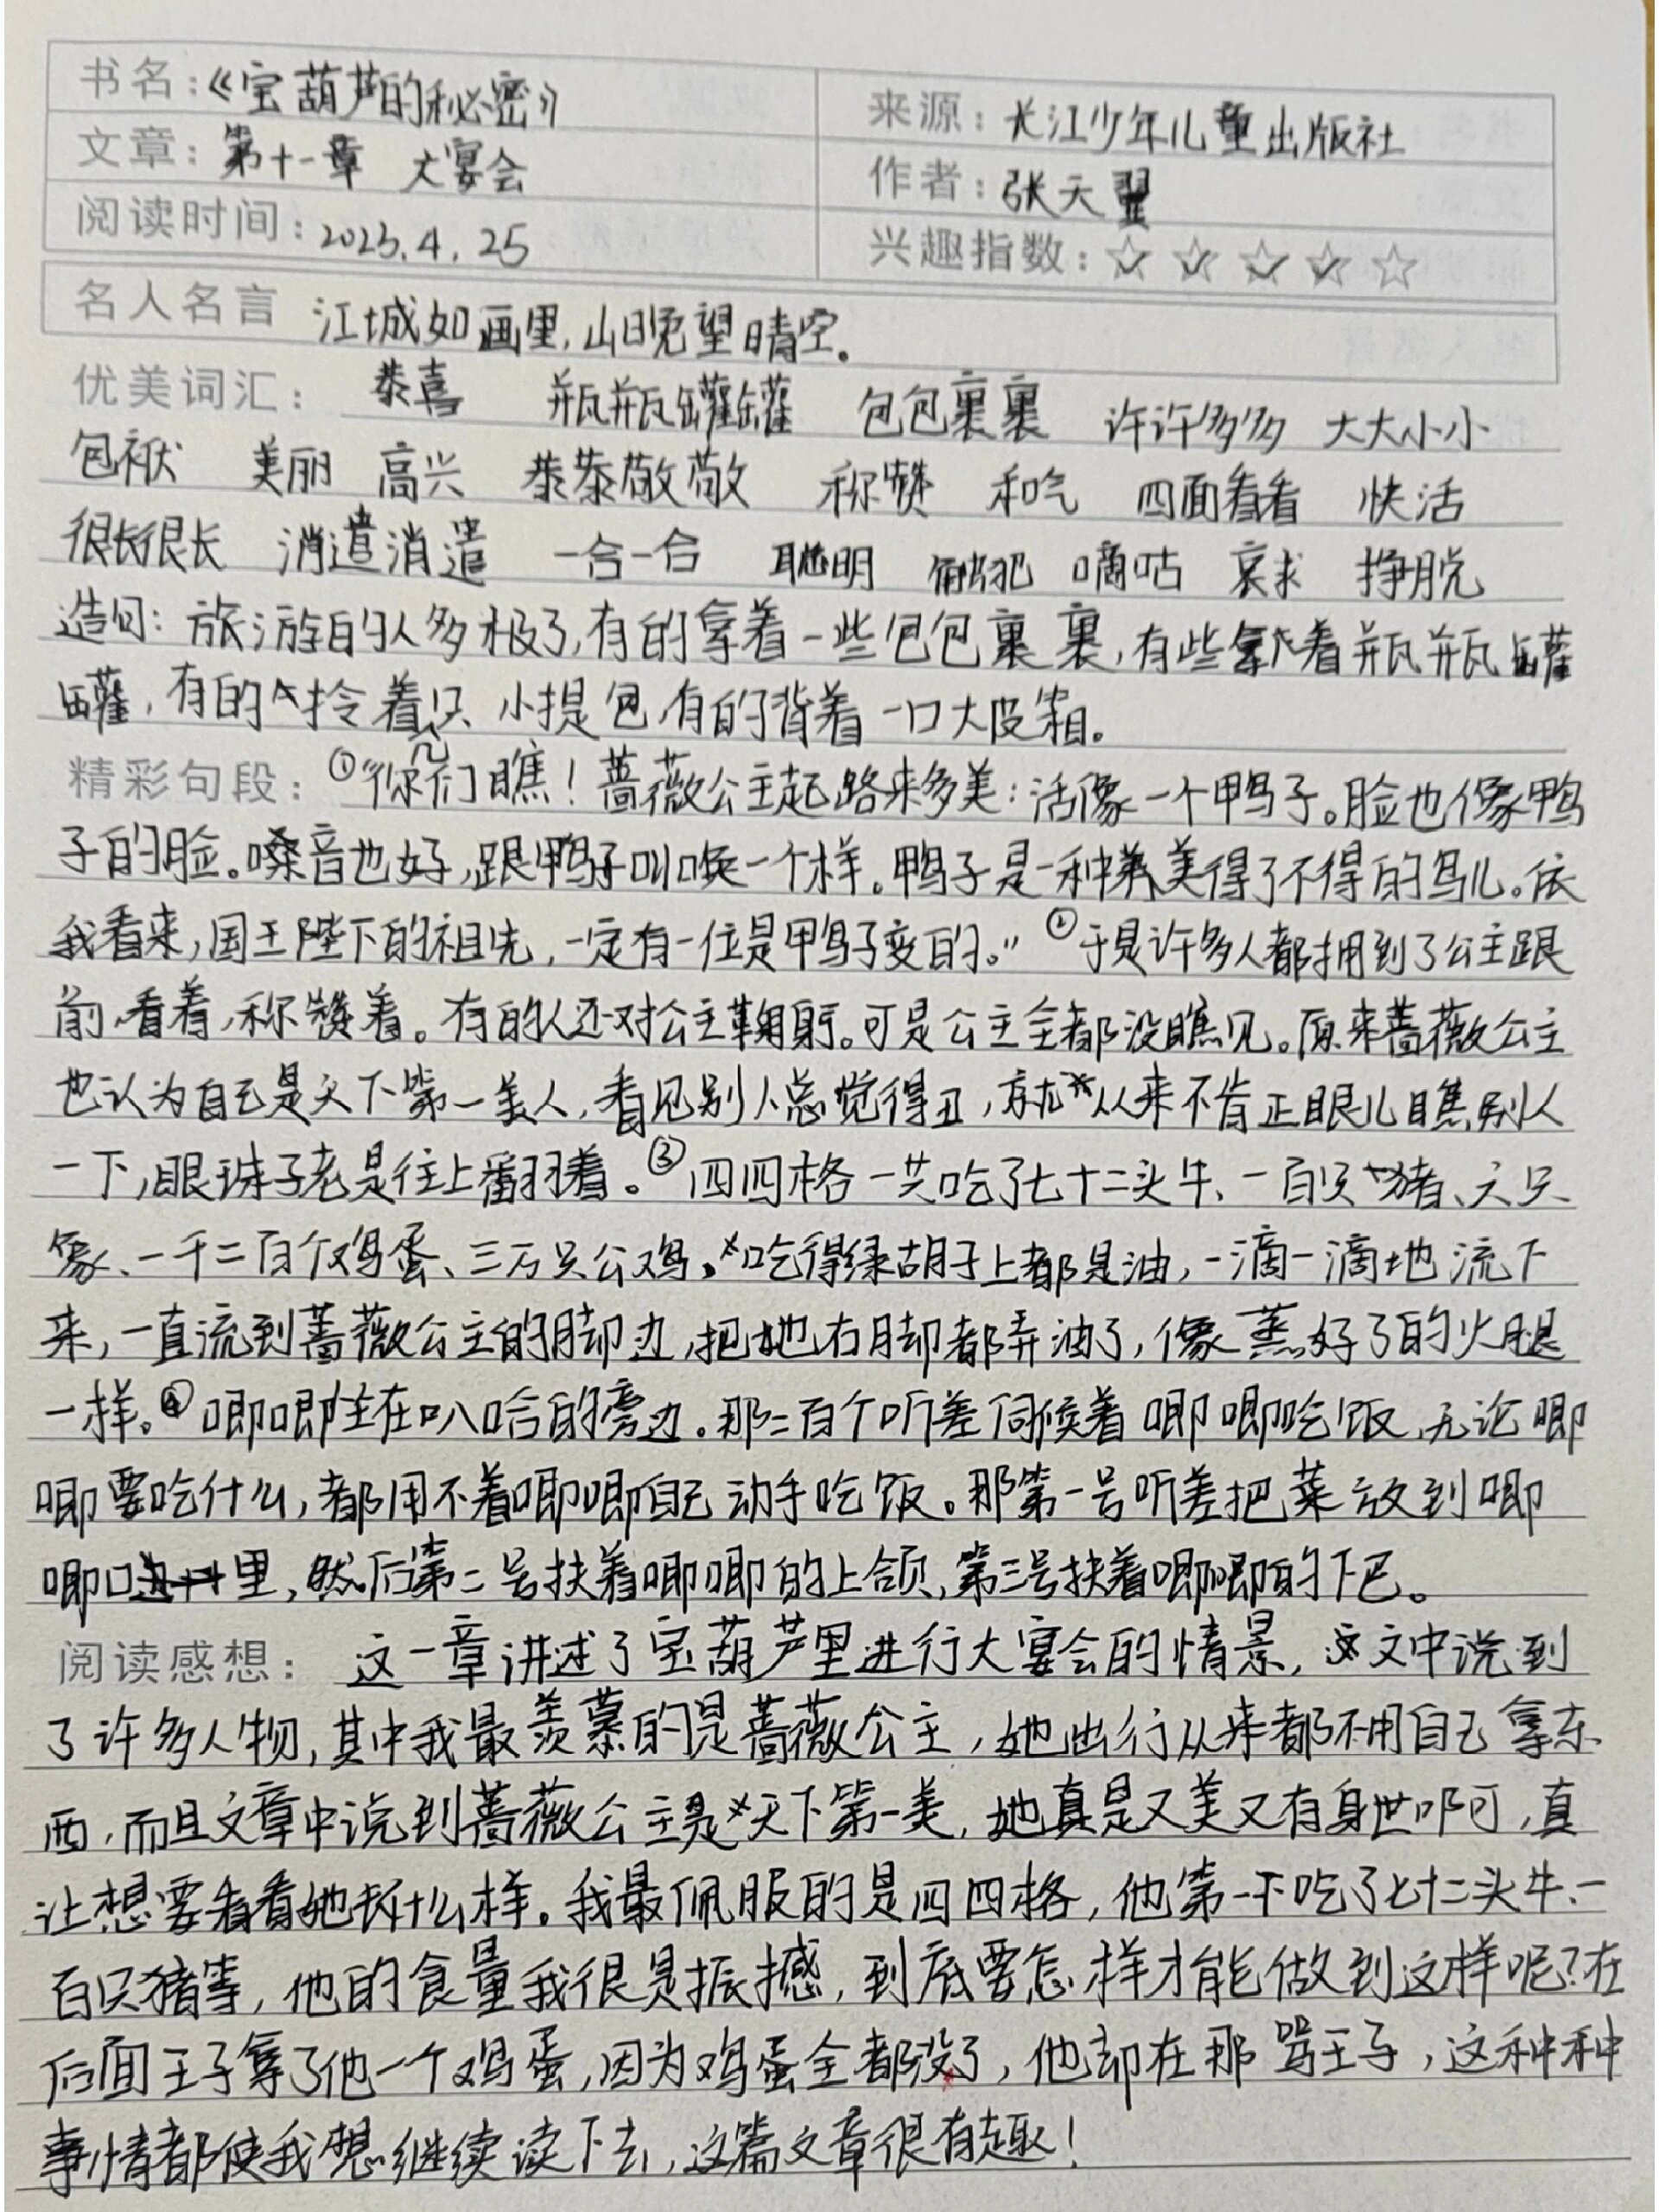 书名：《宝葫芦的秘密》
来源：长江少年儿童出版社
文章：第十一章 大宴会
作者：张天翼
阅读时间：2023.4.25
兴趣指数：☆☆☆☆☆
名人名言 江城如画里，山晚望晴空。
优美词汇：恭喜 瓶瓶罐罐 包包裹裹 许许多多 大大小小
包袱 美丽 高兴 恭恭敬敬 称赞 和气 四面看看 快活
很长很长 消遣消遣 一合一合 聪明 触犯 嘀咕 哀求 挣脱
造句：旅游的人多极了，有的拿着一些包包裹裹，有些拿着瓶瓶罐
罐，有的拎着几只小提包，有的背着一口大皮箱。
精彩句段：①“你们瞧！蔷薇公主起路来多美：活像一个鸭子。脸也像鸭
子的脸。嗓音也好，跟鸭子叫唤一个样。鸭子是一种美得了不得的鸟儿。依
我看来，国王陛下的祖先，一定有一位是鸭子变的。” ②于是许多人都拥到了公主跟
前，看着，称赞着。有的人还对公主鞠躬。可是公主全都没瞧见。原来蔷薇公主
也认为自己是天下第一美人，看见别人总觉得丑，就从来不肯正眼儿瞧别人
一下，眼珠子老是往上翻着。③四四格一共吃了七十二头牛、一百只猪、六只
象、一千二百个鸡蛋、三万只公鸡。吃得绿胡子上都是油，一滴一滴地流下
来，一直流到蔷薇公主的脚边，把她右脚都弄油了，像蒸好了的火腿
一样。④唧唧坐在叭哈的旁边。那二百个听差伺候着唧唧吃饭，无论唧
唧要吃什么，都用不着唧唧自己动手吃饭。那第一号听差把菜放到唧
唧口里，然后第二号扶着唧唧的上颌，第三号扶着唧唧的下巴。
阅读感想：这一章讲述了宝葫芦里进行大宴会的情景，文中说到
了许多人物，其中我最羡慕的是蔷薇公主，她出行从来都不用自己拿东
西，而且文章中说到蔷薇公主是天下第一美，她真是又美又有身世啊，真
让想要看看她长什么样。我最佩服的是四四格，他第一下吃了七十二头牛、一
百只猪等，他的食量我很是振撼，到底要怎样才能做到这样呢？在
后面王子拿了他一个鸡蛋，因为鸡蛋全都没了，他却在那骂王子，这种种
事情都使我想继续读下去，这篇文章很有趣！